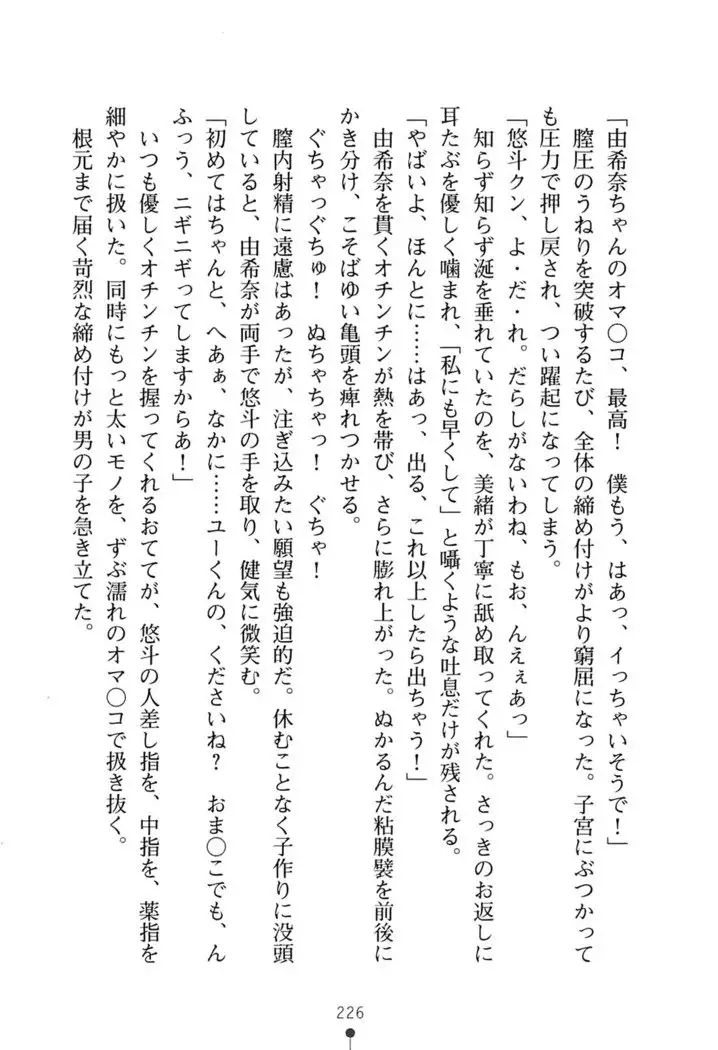 「由希奈ちゃんのオマ〇コ、最高！　僕もう、はあっ、イっちゃいそうで！」
　膣圧のうねりを突破するたび、全体の締め付けがより窮屈になった。子宮にぶつかって
も圧力で押し戻され、つい躍起になってしまう。
「悠斗クン、よ・だ・れ。だらしがないわね、もお、んえぇあっ」
　知らず知らず涎を垂れていたのを、美緒が丁寧に舐め取ってくれた。さっきのお返しに
耳たぶを優しく噛まれ、「私にも早くして」と囁くような吐息だけが残される。
「やばいよ、ほんとに……はあっ、出る、これ以上したら出ちゃう！」
　由希奈を貫くオチンチンが熱を帯び、さらに膨れ上がった。ぬかるんだ粘膜襞を前後に
かき分け、こそばゆい亀頭を痺れつかせる。
　ぐちゃっぐちゅ！　ぬちゃちゃっ！　ぐちゃ！
　膣内射精に遠慮はあったが、注ぎ込みたい願望も強迫的だ。休むことなく子作りに没頭
していると、由希奈が両手で悠斗の手を取り、健気に微笑む。
「初めてはちゃんと、へあぁ、なかに……ユーくんの、くださいね？　おま〇こでも、ん
ふっう、ニギニギってしますからあ！」
　いつも優しくオチンチンを握ってくれるおててが、悠斗の人差し指を、中指を、薬指を
細やかに扱いた。同時にもっと太いモノを、ずぶ濡れのオマ〇コで扱き抜く。
　根元まで届く苛烈な締め付けが男の子を急き立てた。
226